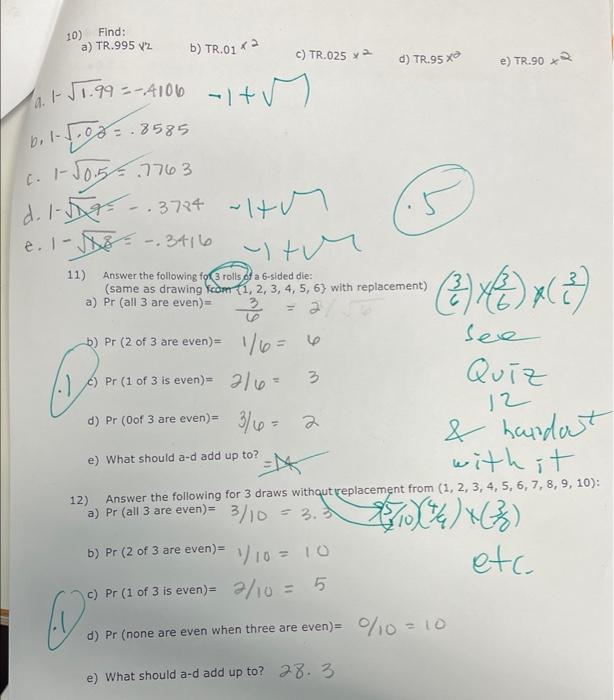 10) Find:
a) TR.995 √2 b) TR.01 x2 c) TR.025 x2 d) TR.95 x2 e) TR.90 x2
a. 1-√1.99 = -.4106 -1+√
b. 1-√.02 = .8585
c. 1-√0.5 = .7763
d. 1-√1.9 = -.3784 -1+√ .5
e. 1-√1.8 = -.3416 -1+√
11) Answer the following for 3 rolls of a 6-sided die:
(same as drawing from {1, 2, 3, 4, 5, 6} with replacement) (3/6)x(3/6)x(3/6)
a) Pr (all 3 are even)= 3/6 = 2
b) Pr (2 of 3 are even)= 1/6 = 6 See
c) Pr (1 of 3 is even)= 2/6 = 3 Quiz
.1 12
d) Pr (0of 3 are even)= 3/6 = 2 & handout
e) What should a-d add up to? with it
12) Answer the following for 3 draws without replacement from {1, 2, 3, 4, 5, 6, 7, 8, 9, 10}:
a) Pr (all 3 are even)= 3/10 = 3.3 (5/10)(4/9)x(3/8)
b) Pr (2 of 3 are even)= 1/10 = 10 etc.
c) Pr (1 of 3 is even)= 2/10 = 5
.1
d) Pr (none are even when three are even)= 0/10 = 10
e) What should a-d add up to? 28.3